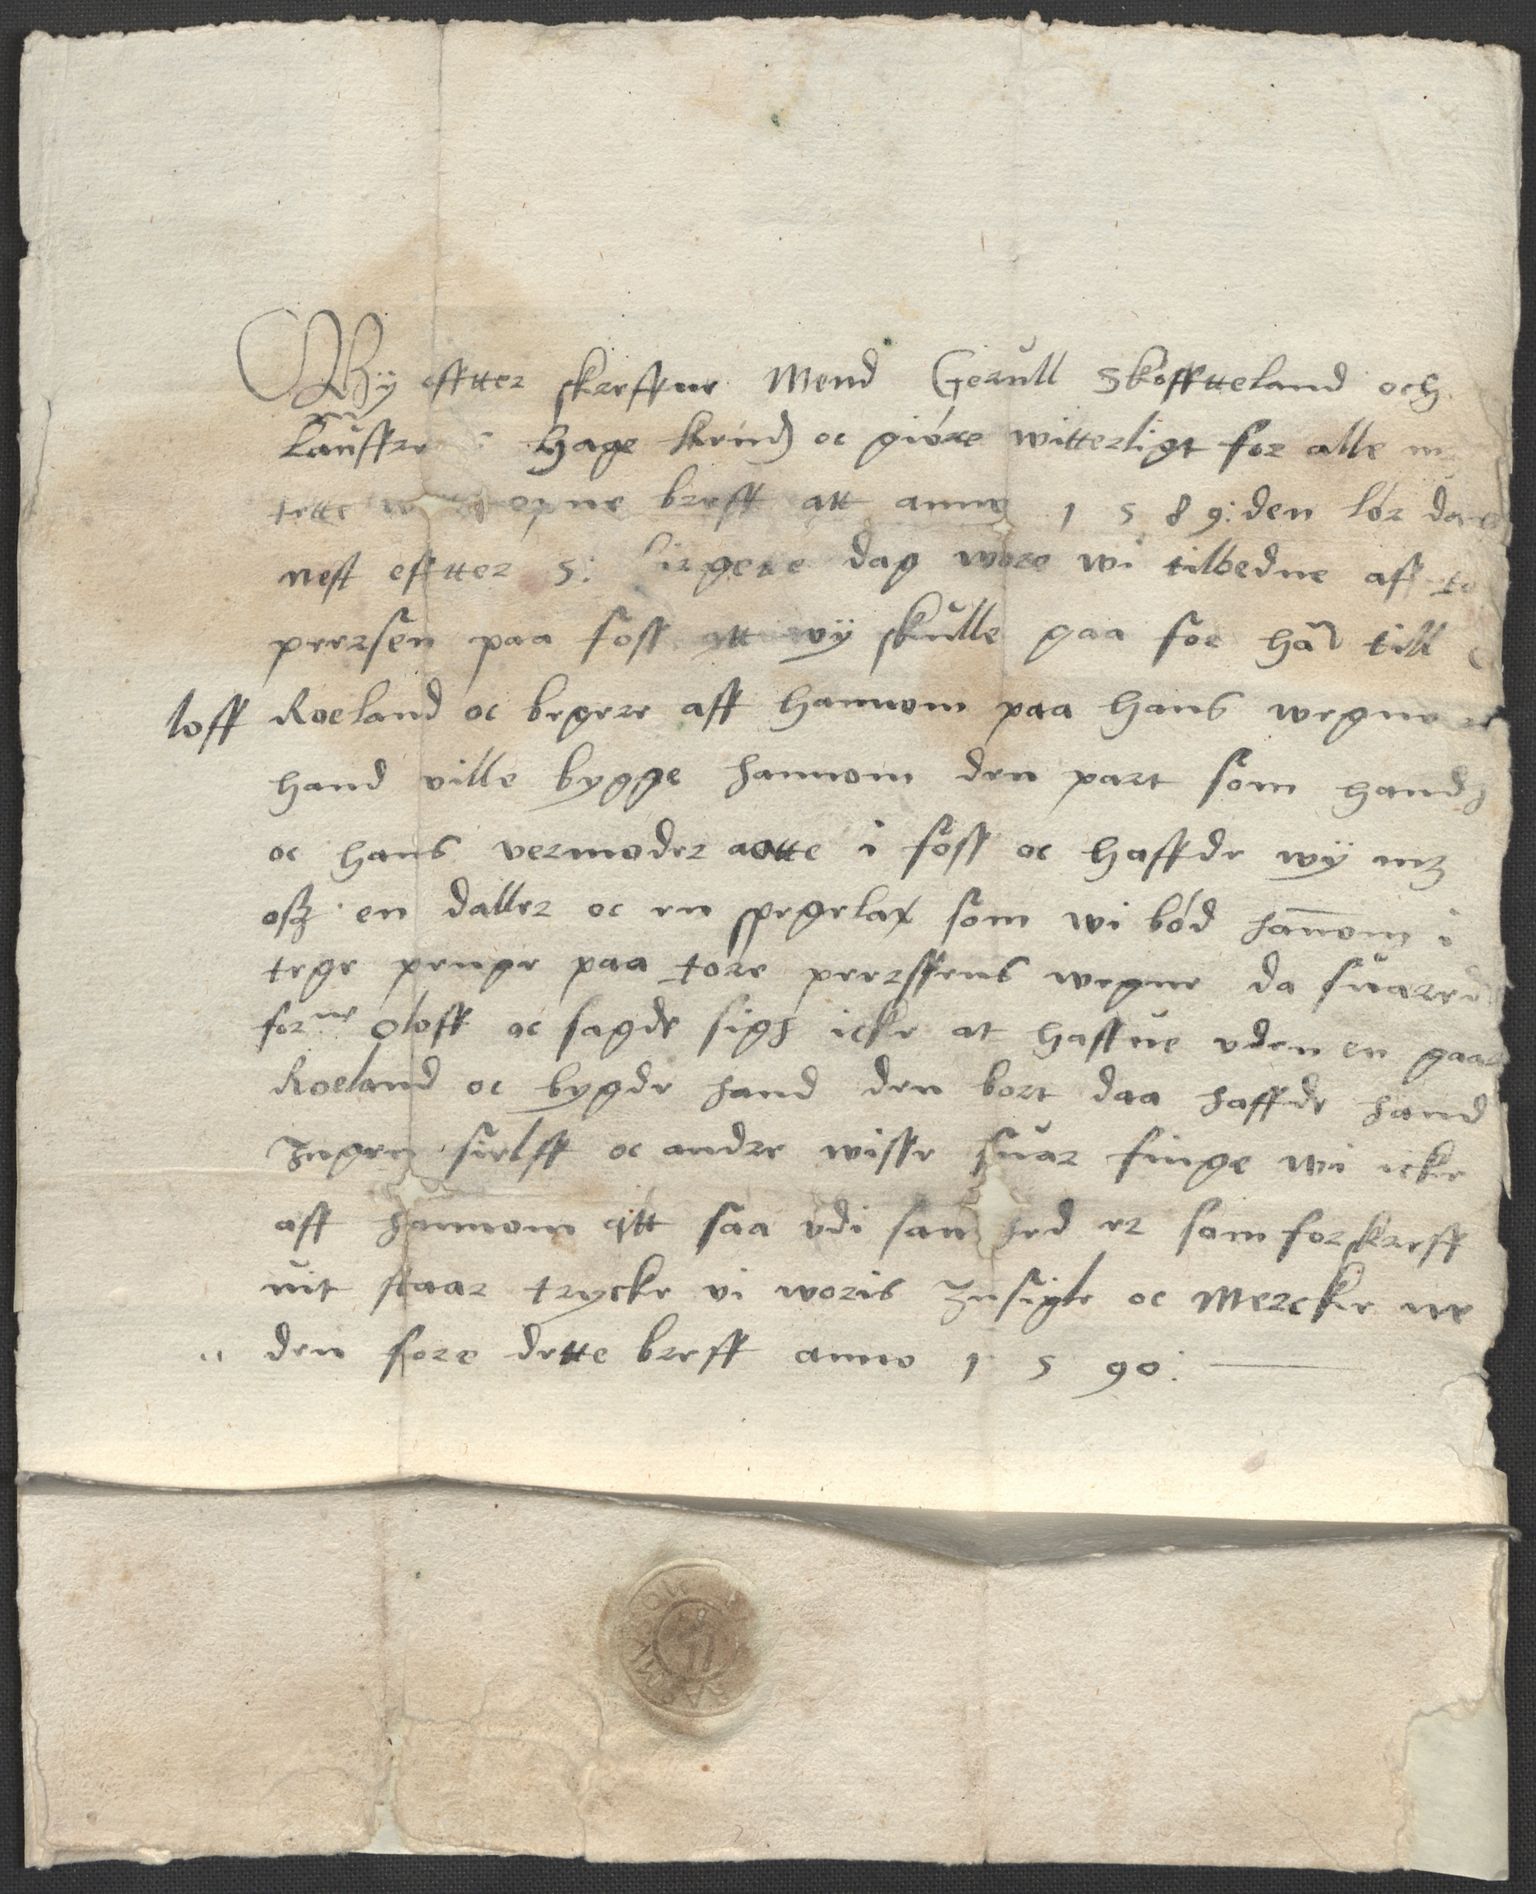 Wÿ effter skreffne Mend Gerull Skofftteland och
Lauffre i Hage kend oc giøre witterligt for alle m
tette opne breff att anno 1 5 8 9: den lør da
nest effter S: dag wore wi tilbedne aff to
peersen paa foss att wÿ skulle gaa for han till
loff Roeland oc begere aff hannom paa hans wegne
hand ville bygge hannom den part som hand
oc hans vermoder aatte i foss oc haffde wÿ mz
osz en daller oc en spegelax som wi bød hannom i
tege penge paa tore peerssens wegne da suarede
forne oloff oc sagde sigh icke at haffue vden en gaar
Roeland oc bygde hand den bort daa haffde hand
Ingen sielff oc andre wisse suar finge wi icke
aff hannom att saa vdi sanhed er som forskreff
uit staar trycke vi woris Insigle oc Mercke ne
den fore dette breff anno 1 5 90: